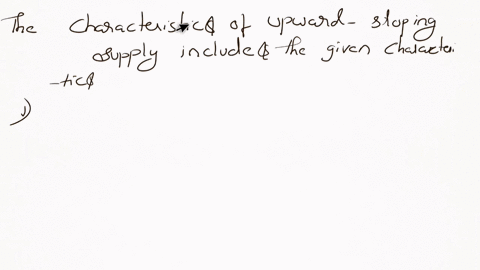 The characteristics of upward-sloping
supply includes the given characteri
-tics
1)